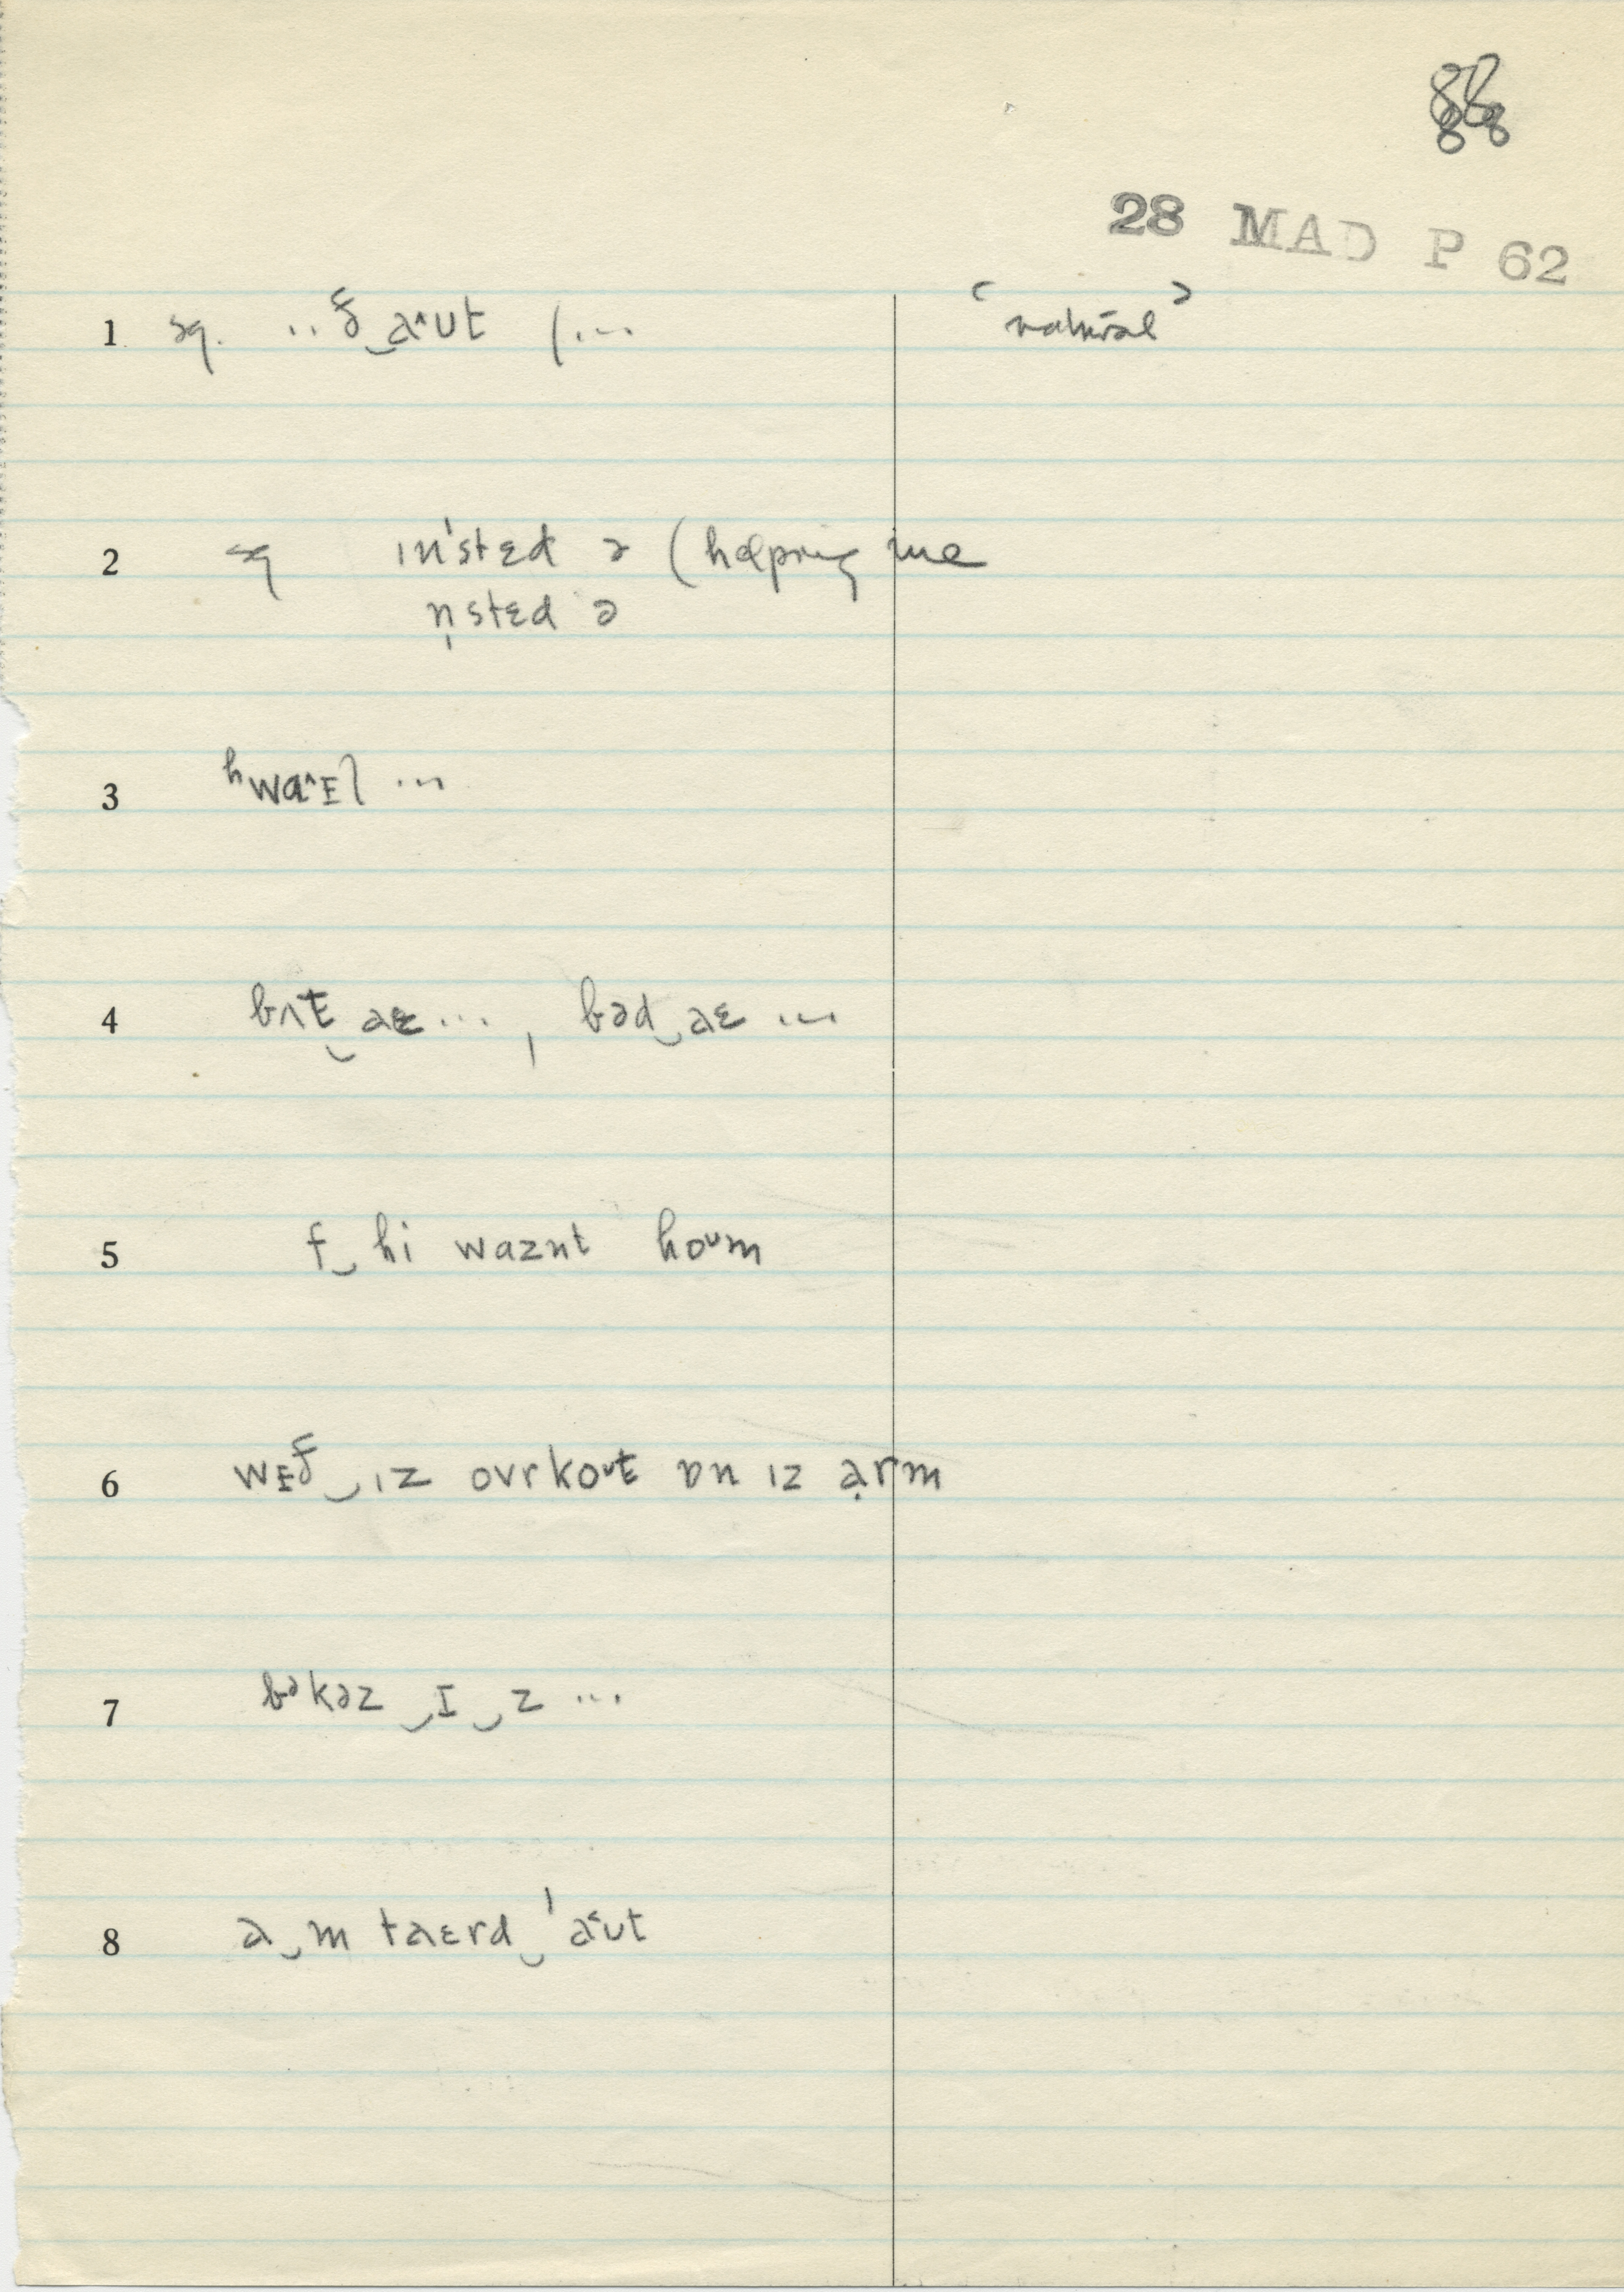 88
28 MAD P 62
1 sq. ..ð‿a^ʊt (... ‹natural›
2 sq ɪn'stɛd ə (helping me
n̩stɛd ə
3 ʰwa^ɪl ...
4 bʌt‿aɛ... , bəd‿aɛ ...
5 f‿hi waznt hoᶷm
6 wɪð‿ɪz ovrkoᶷt ɒn ɪz ạrm
7 bᵊkəz‿I‿z ...
8 a‿m taɛrd‿'a˂ʊt